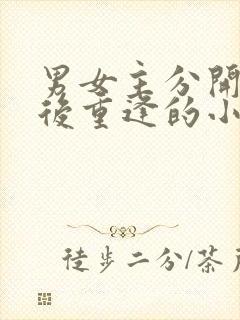 男女主分開
後重逢的小
徒步二分/茶